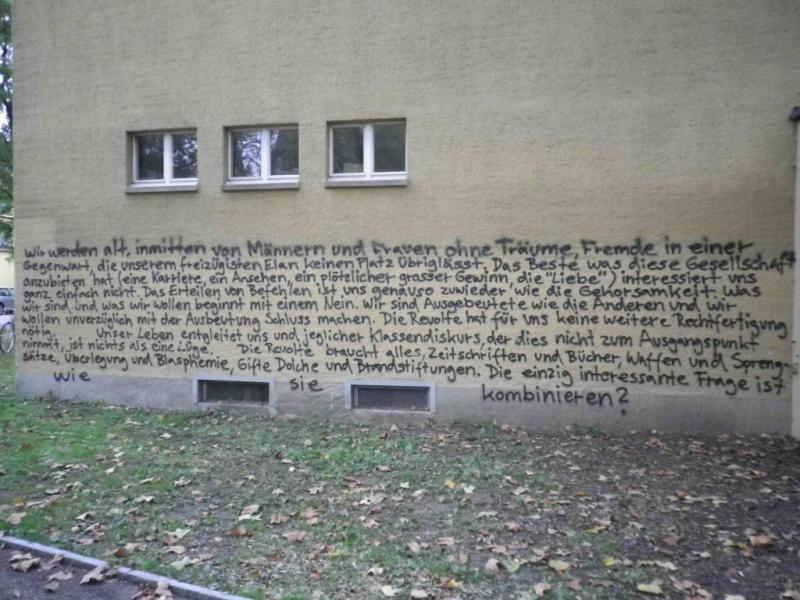 Wir werden alt, inmitten von Männern und Frauen ohne Träume, Fremde in einer
Gegenwart, die unserem freizügigsten Elan keinen Platz übriglässt. Das Beste was diese Gesellschaft
anzubieten hat (eine Karriere, ein Ansehen, ein plötzlicher grosser Gewinn, die "Liebe") interessiert uns
ganz einfach nicht. Das Erteilen von Befehlen ist uns genauso zuwieder, wie die Gehorsamkeit. Was
wir sind und was wir wollen beginnt mit einem Nein. Wir sind Ausgebeutete wie die Anderen und wir
wollen unverzüglich mit der Ausbeutung Schluss machen. Die Revolte hat für uns keine weitere Rechtfertigung
nötig. Unser Leben entgleitet uns und jeglicher Klassendiskurs, der dies nicht zum Ausgangspunkt
nimmt, ist nichts als eine Lüge. Die Revolte braucht alles, Zeitschriften und Bücher, Waffen und Spreng-
sätze, Überlegung und Blasphemie, Gifte Dolche und Brandstiftungen. Die einzig interessante Frage ist
wie sie kombinieren?